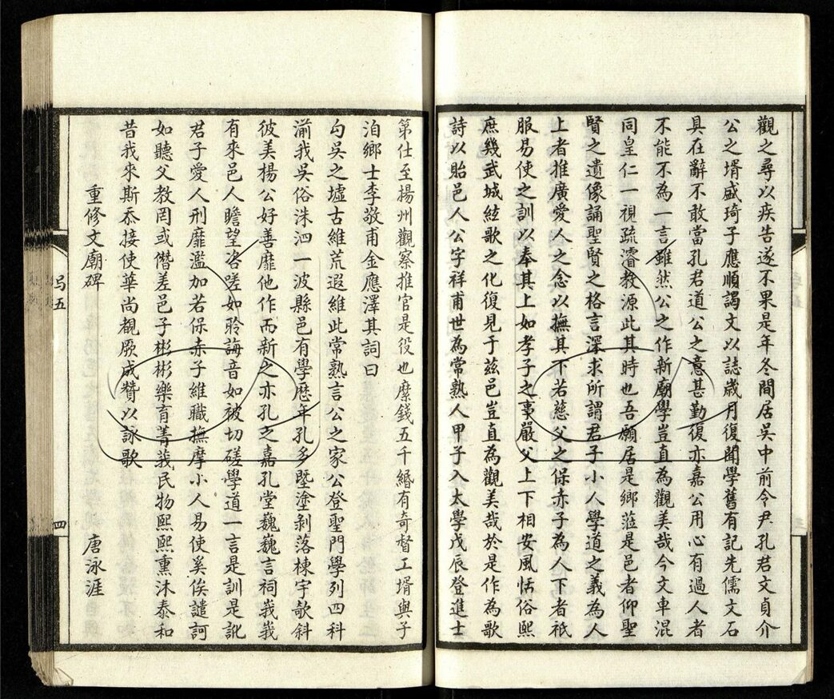 觀之尋以疾告遂不果是年冬間居吳中前令尹孔君文貞介
公之壻盛琦子應順謁文以誌歲月復聞學舊有記先儒文石
具在辭不敢當孔君道公之意甚勤復亦嘉公用心有過人者
不能不為一言雖然公之作新廟學豈直為觀美哉今文車混
同皇仁一視疏濬教源此其時也吾願居是鄉蒞是邑者仰聖
賢之遺像誦聖賢之格言深求所謂君子小人學道之義為人
上者推廣愛人之念以撫其下若慈父之保赤子為人下者祇
服易使之訓以奉其上如孝子之事嚴父上下相安風恬俗熙
庶幾武城絃歌之化復見于茲邑豈直為觀美哉於是作為歌
詩以貽邑人公字祥甫世為常熟人甲子入太學戊辰登進士
第仕至揚州觀察推官是役也縻錢五千緡有奇督工壻與子
洎鄉士李敬甫金應澤其詞曰
勾吳之墟古維荒遐維此常熟言公之家公登聖門學列四科
湔我吳俗洙泗一波縣邑有學歷年孔多曁塗剝落棟宇欹斜
彼美楊公好善靡他作而新之亦孔之嘉孔堂巍巍言祠峩峩
有來邑人瞻望咨嗟如聆誨音如被切磋學道一言是訓是訛
君子愛人刑靡濫加若保赤子維職撫摩小人易使奚俟譴訶
如聽父教罔或僭差邑子彬彬樂育菁莪民物熙熙熏沐泰和
昔我來斯忝接使華尚覩厥成贊以詠歌
重修文廟碑 唐泳涯
弓五
四